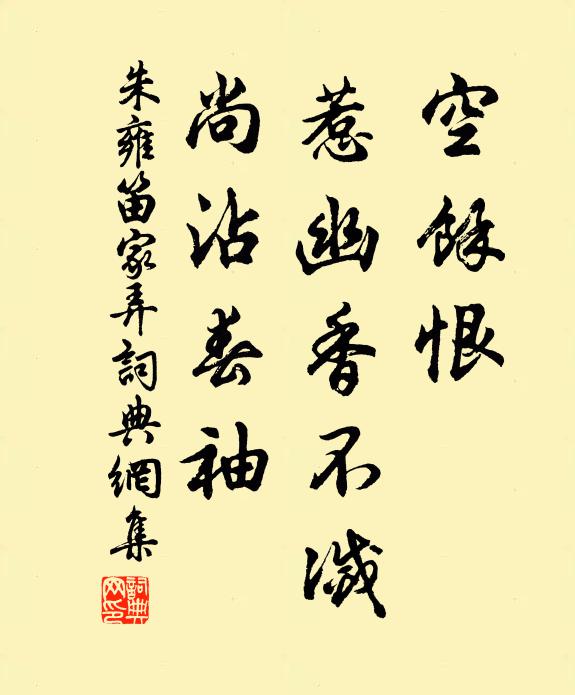 空餘恨
惹幽香不滅
尚沾春袖
朱雍笛家弄詞典網集
詞典網印